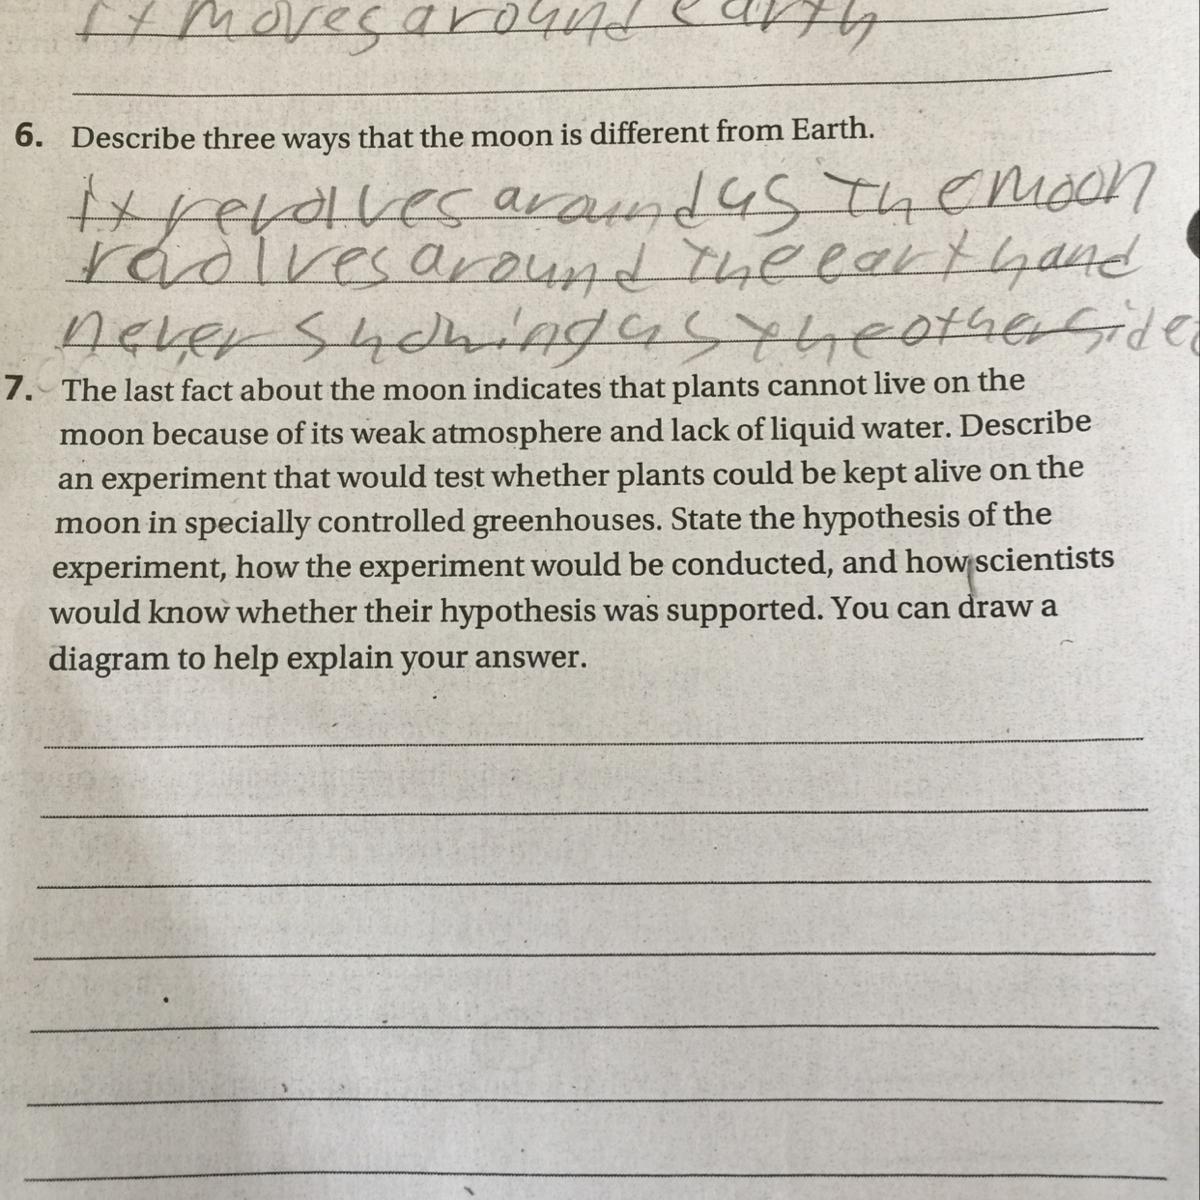 It moves around earth
6. Describe three ways that the moon is different from Earth.
It revolves around us The moon
revolves around the earth and
never showing us the other side
7. The last fact about the moon indicates that plants cannot live on the
moon because of its weak atmosphere and lack of liquid water. Describe
an experiment that would test whether plants could be kept alive on the
moon in specially controlled greenhouses. State the hypothesis of the
experiment, how the experiment would be conducted, and how scientists
would know whether their hypothesis was supported. You can draw a
diagram to help explain your answer.